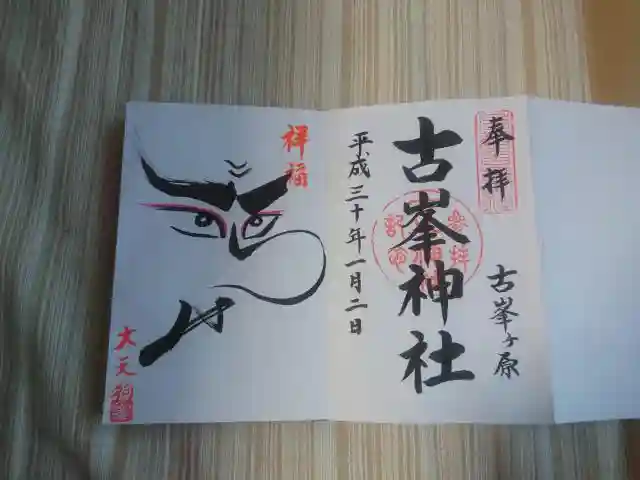 奉拝
古峯ヶ原
古峯神社
平成三十年一月二日
祥福
大天狗